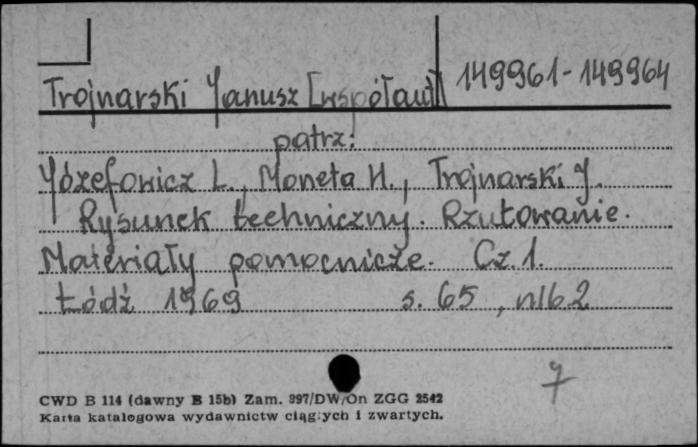 Trojnarski Janusz [współaut] 149961-149964
patrz:
Józefowicz L., Moneta H., Trojnarski J.
Rysunek techniczny. Rzutowanie.
Materiały pomocnicze. Cz. 1.
Łódź 1969 s. 65, nlb 2
7
CWD B 114 (dawny B 15b) Zam. 997/DW/On ZGG 2542
Karta katalogowa wydawnictw ciągłych i zwartych.